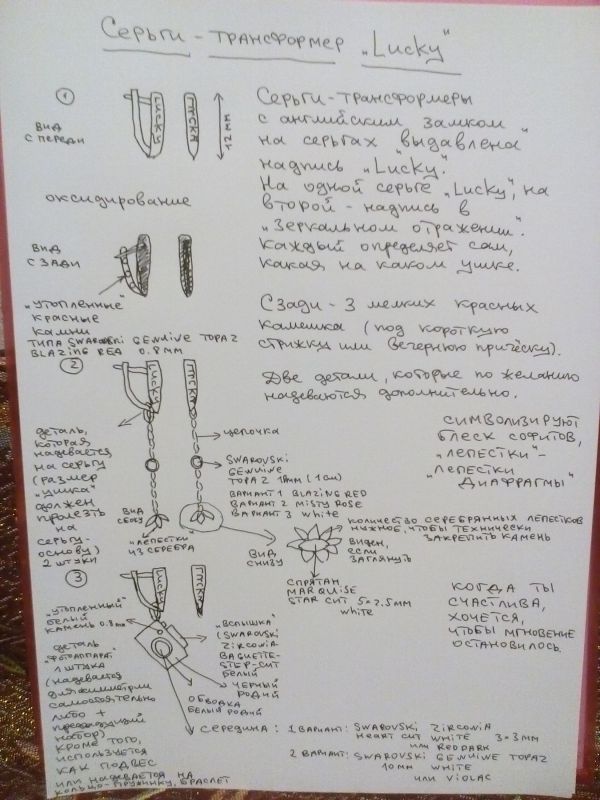 Серьги - трансформер „Lucky"
①
вид
спереди
LUCKY
12 мм
оксидирование
вид
сзади
„утопленные"
красные
камни
типа SWAROVSKI GENUINE TOPAZ
BLAZING RED 0.8мм
Серьги-трансформеры
с английским замком
на серьгах выдавлена
надпись „Lucky".
На одной серьге „Lucky", на
второй - надпись в
„Зеркальном отражении".
Каждый определяет сам,
какая на каком ушке.
Сзади - 3 мелких красных
камешка (под короткую
стрижку или вечернюю причёску).
Две детали, которые по желанию
надеваются дополнительно.
②
LUCKY
деталь,
которая
надевается
на серьгу
(размер
„ушка"
должен
пролезть
на
серьгу-
основу)
2 штуки
вид
сбоку
„лепестки"
из серебра
цепочка
SWAROVSKI
GENUINE
TOPAZ 10мм (1см)
вариант 1 BLAZING RED
вариант 2 MISTY ROSE
вариант 3 white
вид
снизу
символизируют
блеск софитов,
„лепестки" -
„лепестки
диафрагмы"
количество серебрянных лепестков
нужное, чтобы технически
закрепить камень
виден,
если
заглянуть
спрятан
MARQUISE
STAR CUT 5×2.5мм
white
③
LUCKY
„утопленный"
белый
камень 0.8мм
деталь
„фотоаппарат"
1 штука
(надевается
для симметрии
самостоятельно
либо +
предыдущий
набор)
кроме того,
используется
как подвес
или надевается на
кольцо-пружинку, браслет
„вспышка"
(SWAROVSKI
ZIRCONIA
BAGUETTE-
STEP-CUT
белый
черный
родий
обводка
белый родий
когда ты
счастлива,
хочется,
чтобы мгновение
остановилось.
середина: 1 вариант: SWAROVSKI ZIRCONIA
HEART CUT WHITE 3×3мм
или RED DARK
2 вариант: SWAROVSKI GENUINE TOPAZ
10мм WHITE
или VIOLAC